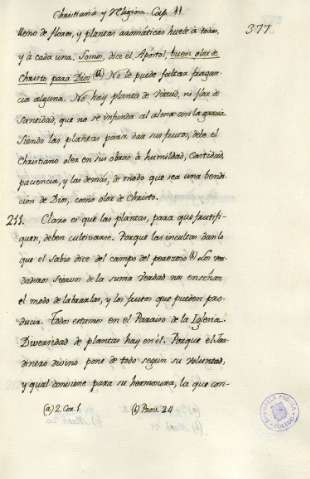 Christiana y Religiosa Cap. 11
377
lleno de flores, y plantas aromáticas huele à todo,
y à cada una. Somos, dice el Apóstol, buen olor de
Christo para Dios (a) No le puede faltar fragan
cia alguna. No hay planta de virtud, ni flor de
Santidad, que no se infunda al alma con la gracia
Siendo las plantas para dar sus frutos, debe el
Christiano oler en sus obras à humildad, Castidad,
paciencia, y las demás, de modo que sea una bendi
cion de Dios, como olor de Christo.
211. Claro es que las plantas, para que fructifi
quen, deben cultivarse. Porque las incultas dan lo
que el Sabio dice del campo del perezoso (b) Los ver
daderos Siervos de la suma Verdad nos enseñan
el modo de labrarlas, y los frutos que pueden pro
ducir. Todos estamos en el Paraiso de la Iglesia.
Diversidad de plantas hay en él. Porque el Jar
dinero divino pone de todo segun su voluntad,
y qual conviene para su hermosura, la que con-
(a) 2. Cor. 1. (b) Prov. 24